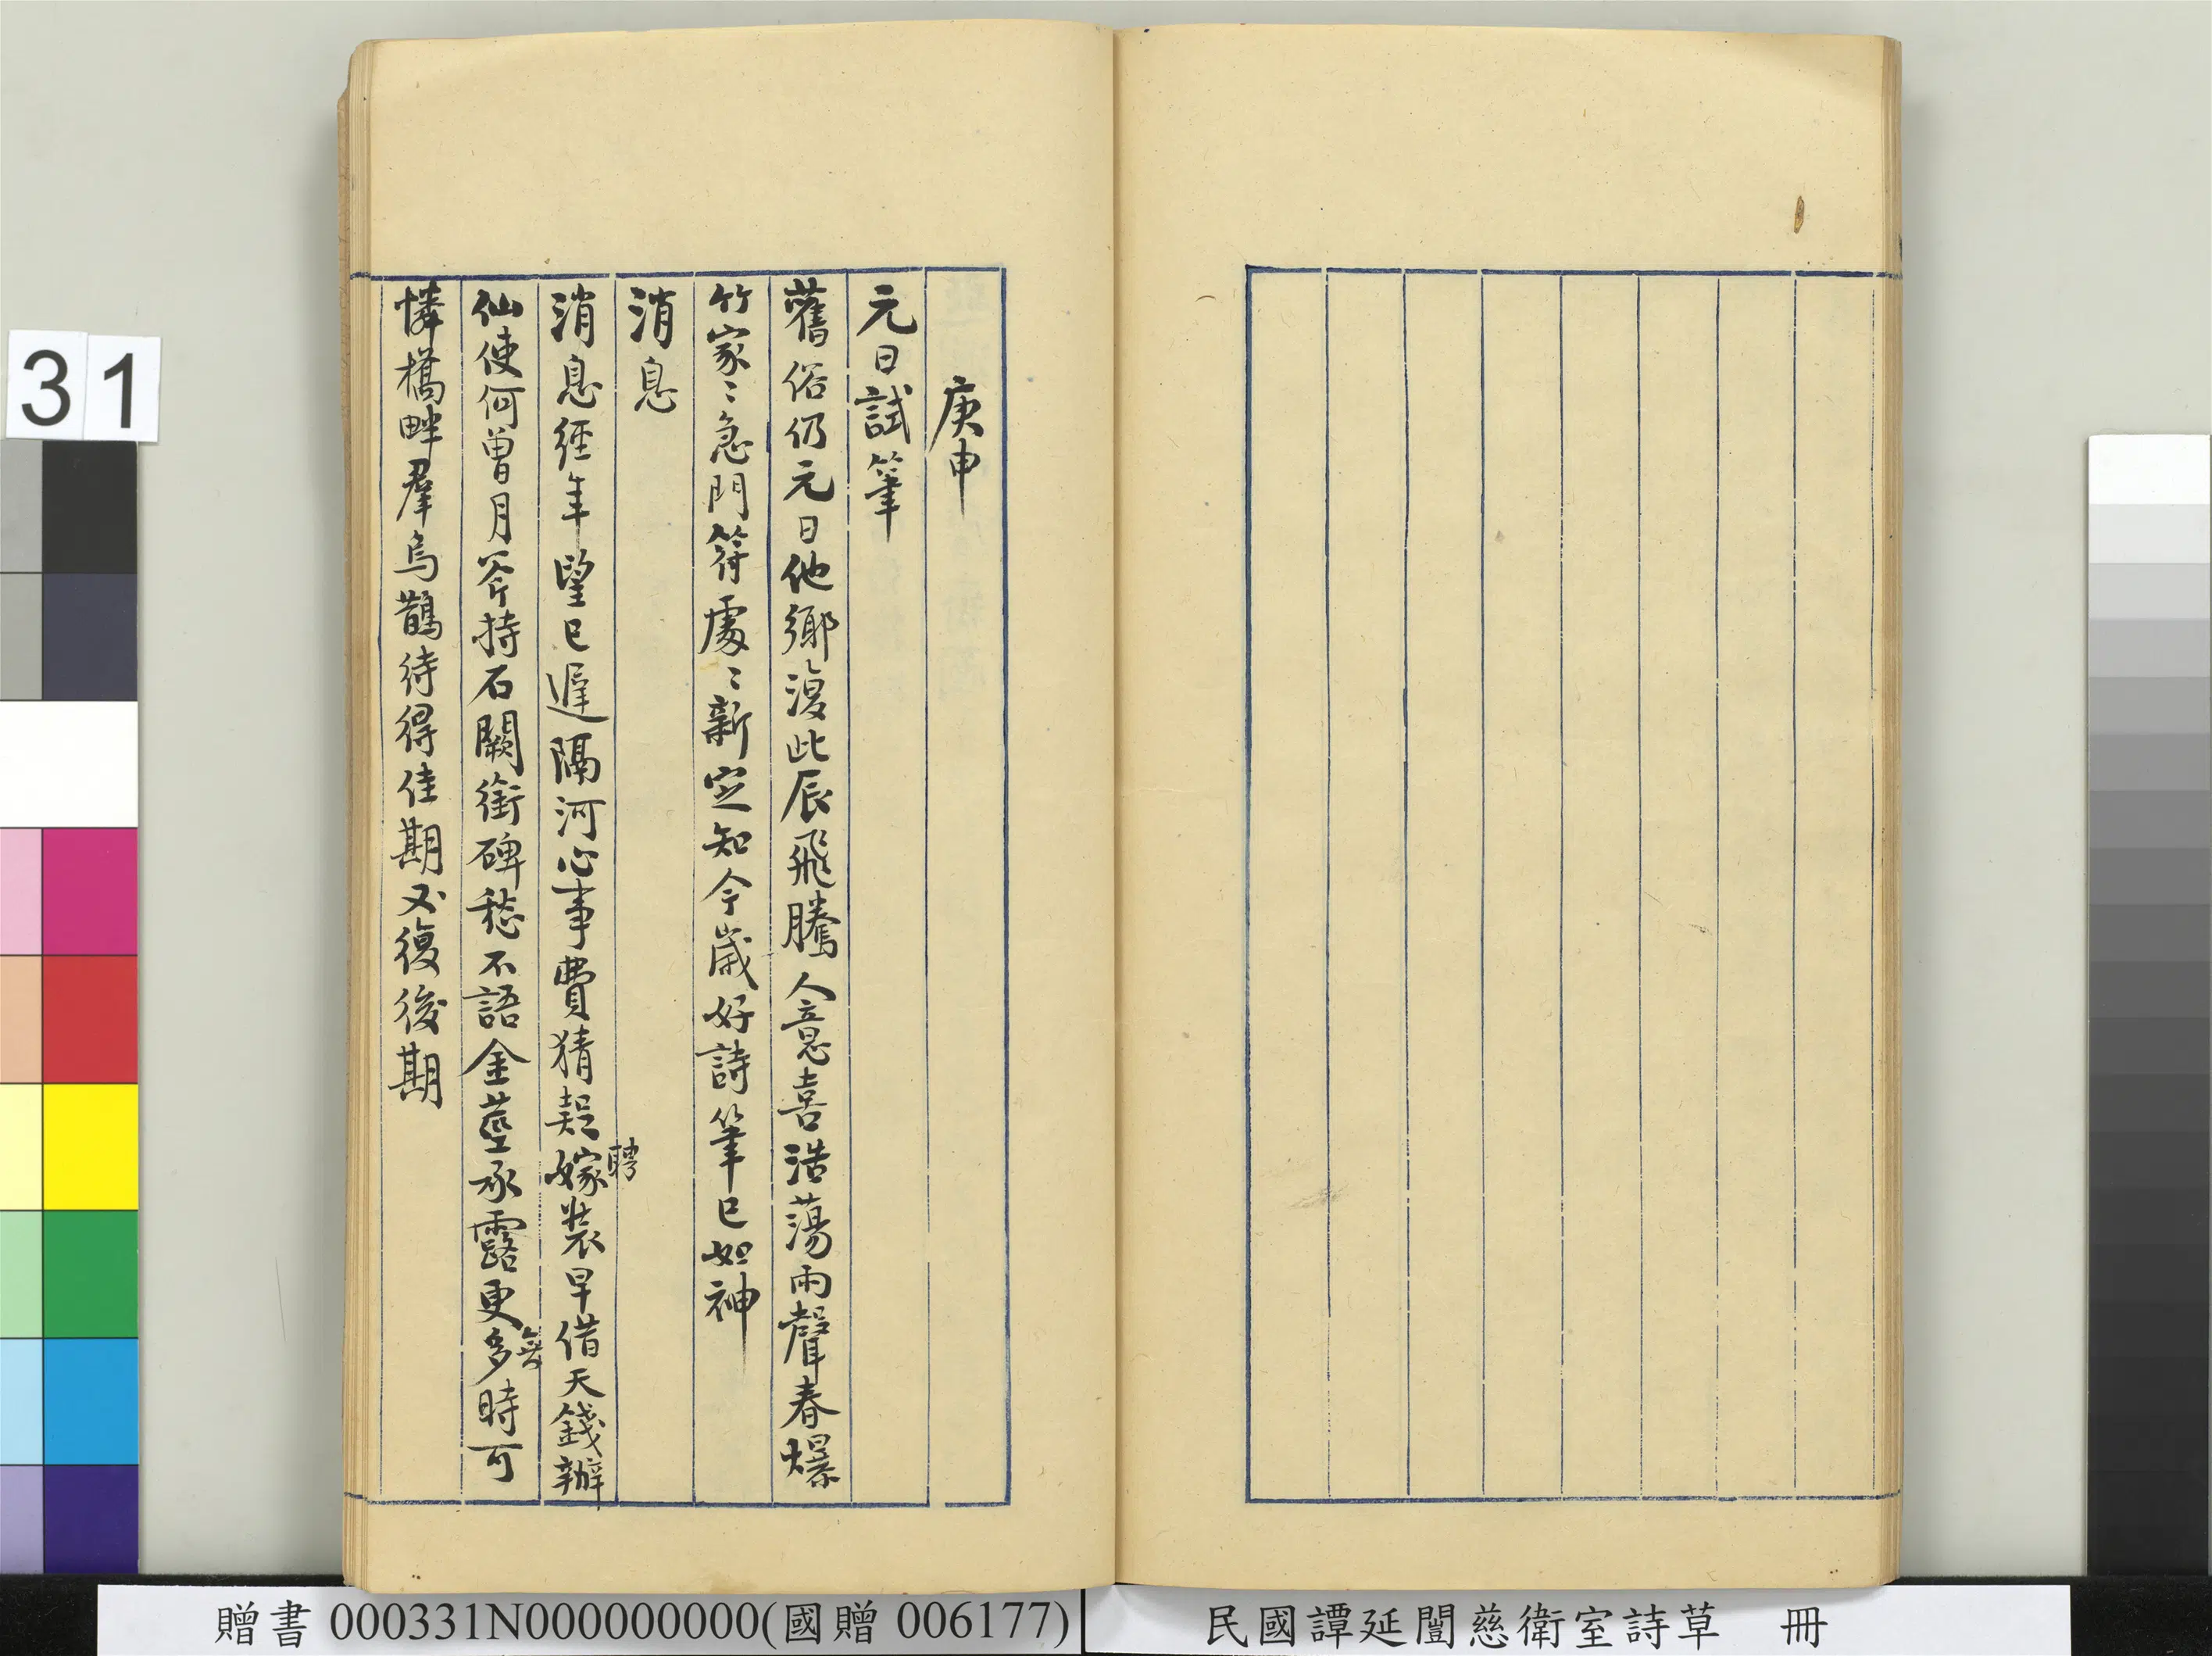 庚申
元日試筆
舊俗仍元日他鄉復此辰飛騰人意喜浩蕩雨聲春爆
竹家〻急門符處〻新定知今歲好詩筆已如神
消息
消息經年望已遲隔河心事費猜疑嫁裝早借天錢辦
聘
仙使何曾月斧持石闕銜碑愁不語金莖承露更多時可
無
憐橋畔羣烏鵲待得佳期又後後期
31
贈書 000331N000000000(國贈 006177)
民國譚延闓慈衛室詩草 冊